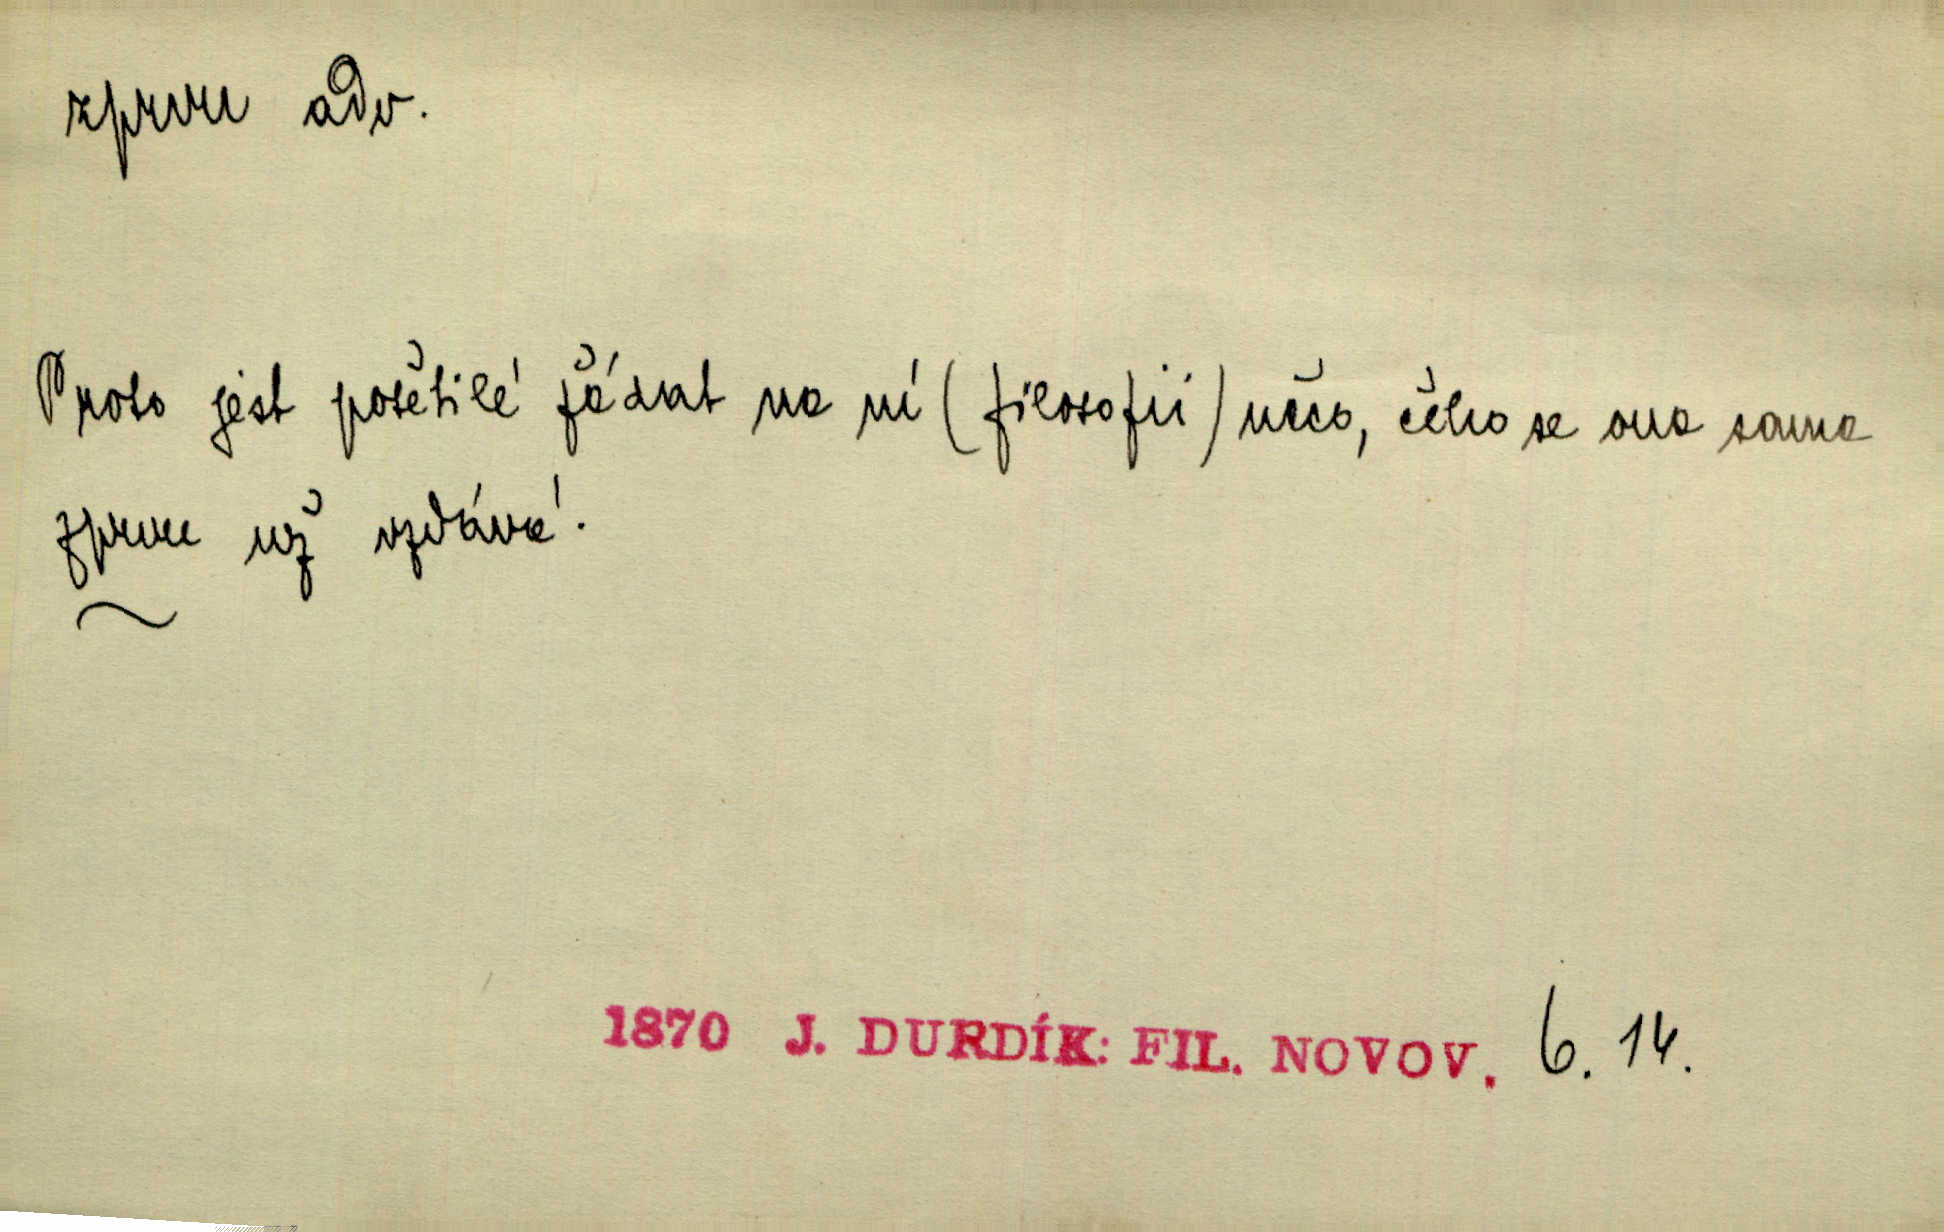 zprvu adv.
Proto jest pošetilé žádat na ní (filosofii) něco, čeho se ona sama
zprvu už vzdává.
1870 J. DURDÍK: FIL. NOVOV. 6. 14.